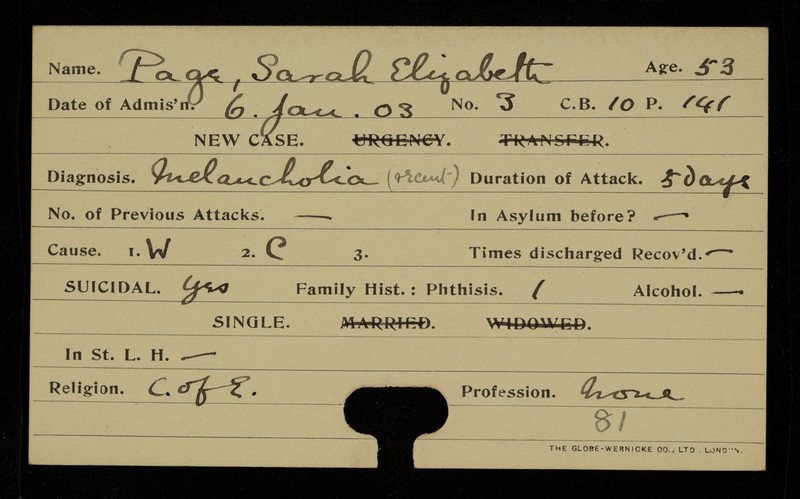 Name. Page, Sarah Elizabeth Age. 53
Date of Admis'n. 6. Jan. 03 No. 3 C.B. 10 P. 141
NEW CASE. URGENCY. TRANSFER.
Diagnosis. Melancholia (recent) Duration of Attack. 5 Days
No. of Previous Attacks. — In Asylum before? —
Cause. 1. W 2. C 3. Times discharged Recov'd. —
SUICIDAL. Yes Family Hist.: Phthisis. / Alcohol. —
SINGLE. MARRIED. WIDOWED.
In St. L. H. —
Religion. C. of E. Profession. None
81
THE GLOBE-WERNICKE CO., LTD. LONDON.